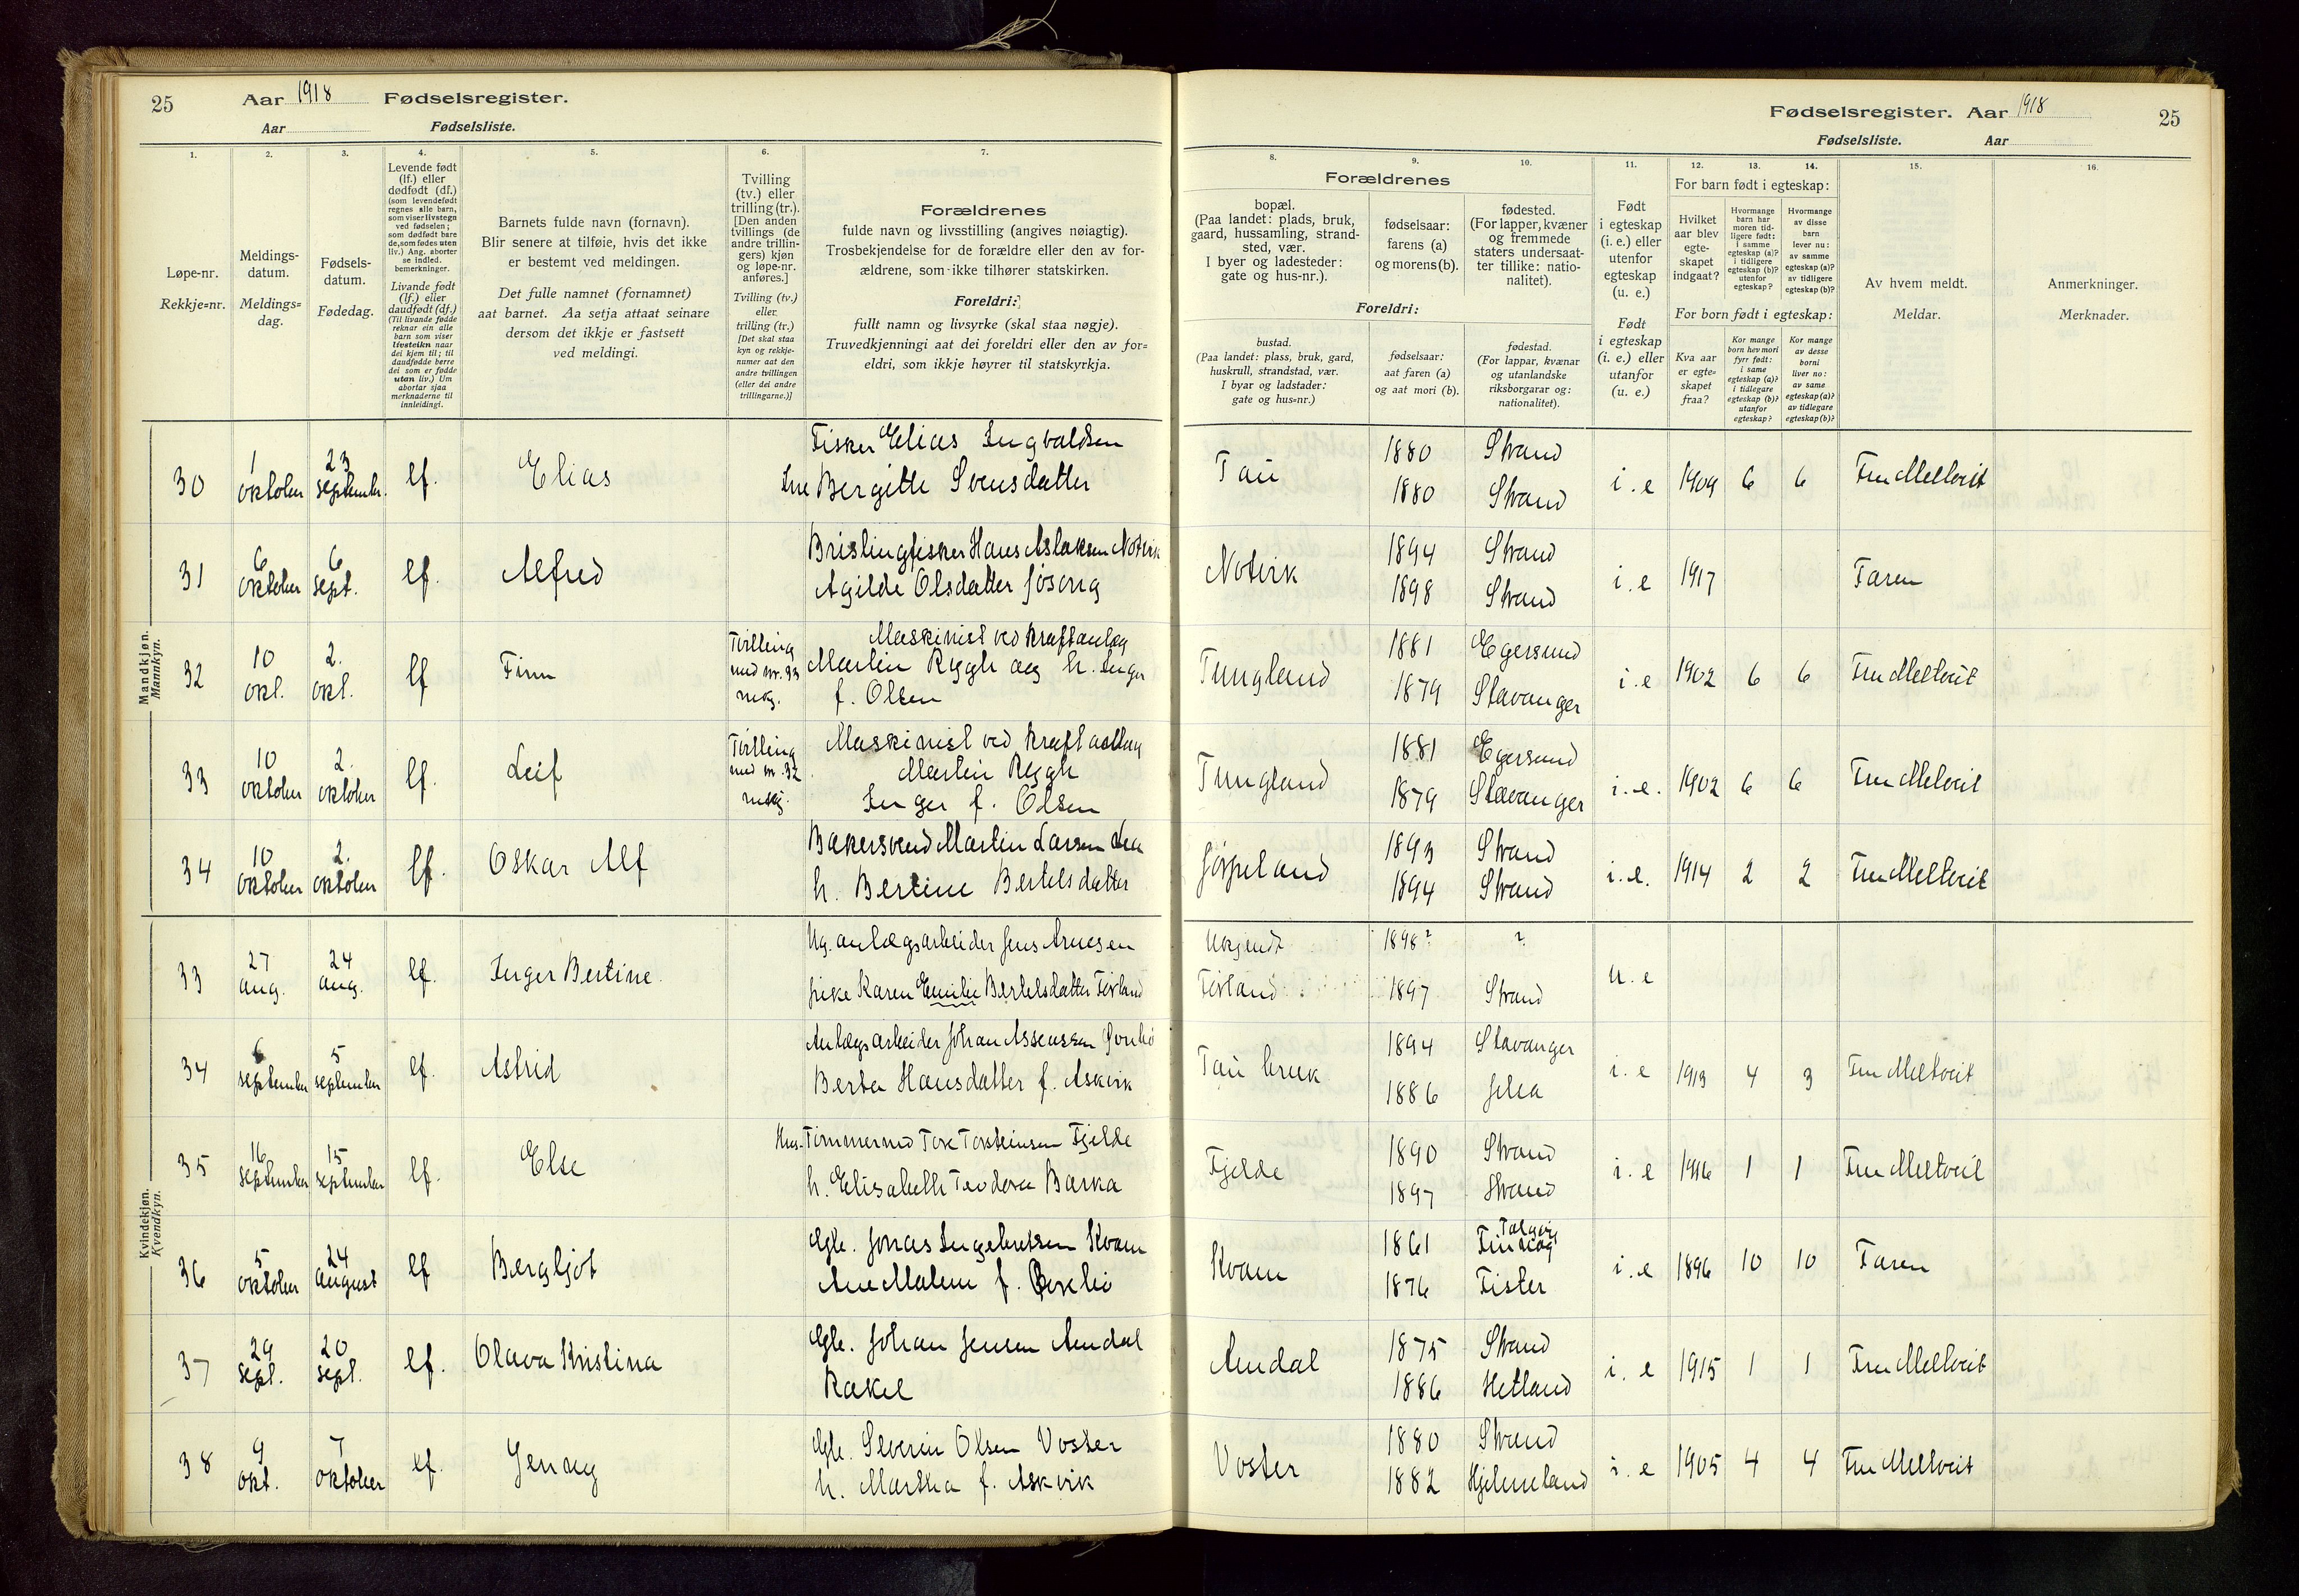 25 Aar 1918 Fødselsregister.
Aar Fødselsliste.
Fødselsregister. Aar 1918 25
Fødselsliste. Aar
1. 2. 3. 4. 5. 6. 7.
Løpe-nr.
Rekkje=nr.
Meldings-
datum.
Meldings=
dag.
Fødsels-
datum.
Fødedag.
Levende født
(lf.) eller
dødfødt (df.)
(som levendefødt
regnes alle barn,
som viser livstegn
ved fødselen;
som dødfødt bare
de, som fødes uten
liv.) Ang. aborter
se indled.
bemerkninger.
Livande født
(lf.) eller
daudfødt (df.)
(Til livande fødde
reknar ein alle
barn som viser
livsteikn naar
dei kjem til; til
daudfødde berre
dei som er fødde
utan liv.) Um
abortar sjaa
merknaderne til
innleidingi.
Barnets fulde navn (fornavn).
Blir senere at tilføie, hvis det ikke
er bestemt ved meldingen.
Det fulle namnet (fornamnet)
aat barnet. Aa setja attaat seinare
dersom det ikkje er fastsett
ved meldingi.
Tvilling
(tv.) eller
trilling (tr.).
[Den anden
tvillings (de
andre trillin-
gers) kjøn
og løpe-nr.
anføres.]
Tvilling (tv.)
eller
trilling (tr.)
[Det skal staa
kyn og rekkje-
numer aat den
andre tvillingen
(eller dei andre
trillingarne.)]
Forældrenes
fulde navn og livsstilling (angives nøiagtig).
Trosbekjendelse for de forældre eller den av for-
ældrene, som ikke tilhører statskirken.
Foreldri:
fullt namn og livsyrke (skal staa nøgje).
Truvedkjenningi aat dei foreldri eller den av for=
eldri, som ikkje høyrer til statskyrkja.
8. 9. 10. 11. 12. 13. 14. 15. 16.
Forældrenes
bopæl.
(Paa landet: plads, bruk,
gaard, hussamling, strand-
sted, vær.
I byer og ladesteder:
gate og hus-nr.).
fødselsaar:
farens (a)
og morens (b).
fødested.
(For lapper, kvæner
og fremmede
staters undersaat-
ter tillike: natio-
nalitet).
Foreldri:
bustad.
(Paa landet: plass, bruk, gard,
huskrull, strandstad, vær.
I byar og ladstader:
gate og hus=nr.)
fødselsaar:
aat faren (a)
og aat mori (b).
fødestad.
(For lappar, kvænar
og utanlandske
riksborgarar og:
nationalitet).
Født
i egteskap
(i. e.) eller
utenfor
egteskap
(u. e.)
Født
i egteskap
(i. e.) eller
utanfor
(u. e.)
For barn født i egteskap:
Hvilket
aar blev
egte-
skapet
indgaat?
Hvormange
barn har
moren tid-
ligere født:
i samme
egteskap (a)?
i tidligere
egteskap (b)?
utenfor
egteskap?
Hvormange
av disse
barn
lever nu:
av samme
egteskap (a)?
av tidligere
egteskap (b)?
For born født i egteskap:
Kva aar
er egte=
skapet
fraa?
Kor mange
born hev mori
fyrr født:
i same
egteskap (a)?
i tidlegare
egteskap (b)?
utanfor
egteskap?
Kor mange
av desse
borni
liver no:
av same
egteskap (a)?
av tidlegare
egteskap (b)?
Av hvem meldt.
Meldar.
Anmerkninger.
Merknader.
Mandkjøn.
Mannkyn.
30 1 oktober 23 september. lf. Elias Fisker Elias Ingvaldsen
Bergitte Svensdatter
Tau 1880 Strand
1880 Strand i.e 1909 6 6 Fru Meltveit
31 6 oktober 6 sept. lf. Alfred Brislingfisker Hans Aslaksen Notvik
Agilde Olsdatter Jøsang
Notvik 1894 Strand
1898 Strand i.e 1917 Faren
32 10 okt. 2. okt. lf Finn Tvilling med nr. 33 Maskinist ved kraftanlæg
Martin Rygh og h. Inger
f. Olsen
Tungland 1881 Egersund
1879 Stavanger i.e 1902 6 6 Fru Meltveit
33 10 oktober 2. oktober lf. Leif Tvilling med nr. 32 Maskinist ved kraftanlæg
Martin Rygh
Inger f. Olsen
Tungland 1881 Egersund
1879 Stavanger i.e. 1902 6 6 Fru Meltveit
34 10 oktober 2. oktober lf. Oskar Alf Bakersvend Martin Larsen Lea
h. Bertine Bertelsdatter
Jørpeland 1893 Strand
1894 Strand i.e. 1914 2 2 Fru Meltveit
Kvindekjøn.
Kvendkyn.
33 27 aug. 24 aug. lf. Inger Bertine. Ug. anlægsarbeider Jens Arnesen
pike Karen Emilie Bertelsdatter Førland
Ukjendt 1898? ?
Førland 1897 Strand u.e
34 6 september 5 september lf. Astrid Anlægsarbeider Johan Assensen
Berta Hansdatter f. Askvik
Tau bruk 1894 Stavanger
1886 Jelsa i.e 1913 4 3 Fru Meltveit
35 16 september 15 september lf. Else Hus. Tømmermd Tore Torsteinsen Fjelde
h. Elisabeth Teodora Barka
Fjelde 1890 Strand
1897 Strand i.e 1916 1 1 Fru Meltveit
36 5 oktober 24 august lf Bergljot Gbr. Jonas Ingebretsen Kvam
Ane Malene f.
Kvam 1861
1876 Fister i.e 1896 10 10 Faren
37 29 sept. 20 sept. lf. Olava Kristina Gbr. Johan Jensen Amdal
Rakel
Amdal 1875 Strand
1886 Hetland i.e 1915 1 1 Fru Meltveit
38 9 okt. 7 oktober lf. Jenny Gbr. Severin Olsen Voster
h. Martha f. Askvik
Voster 1880 Strand
1882 Hjelmeland i.e 1905 4 4 Fru Meltveit